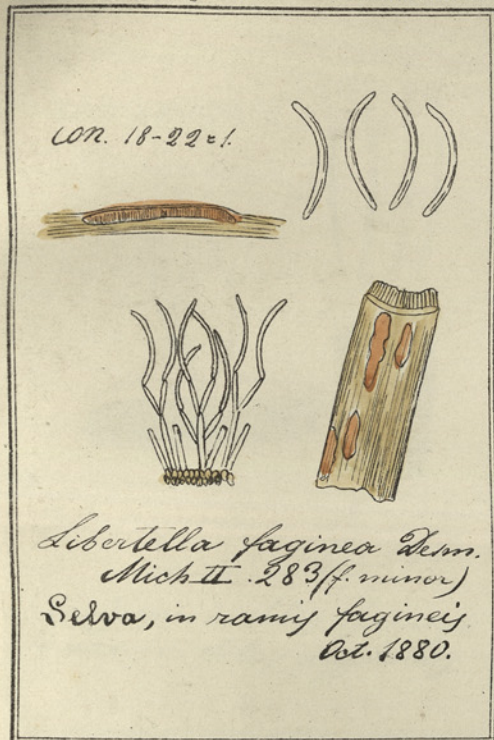 con. 18-22=1.
Libertella faginea Desm.
Mich II. 283 (f. minor)
Selva, in ramis fagineis
Oct. 1880.